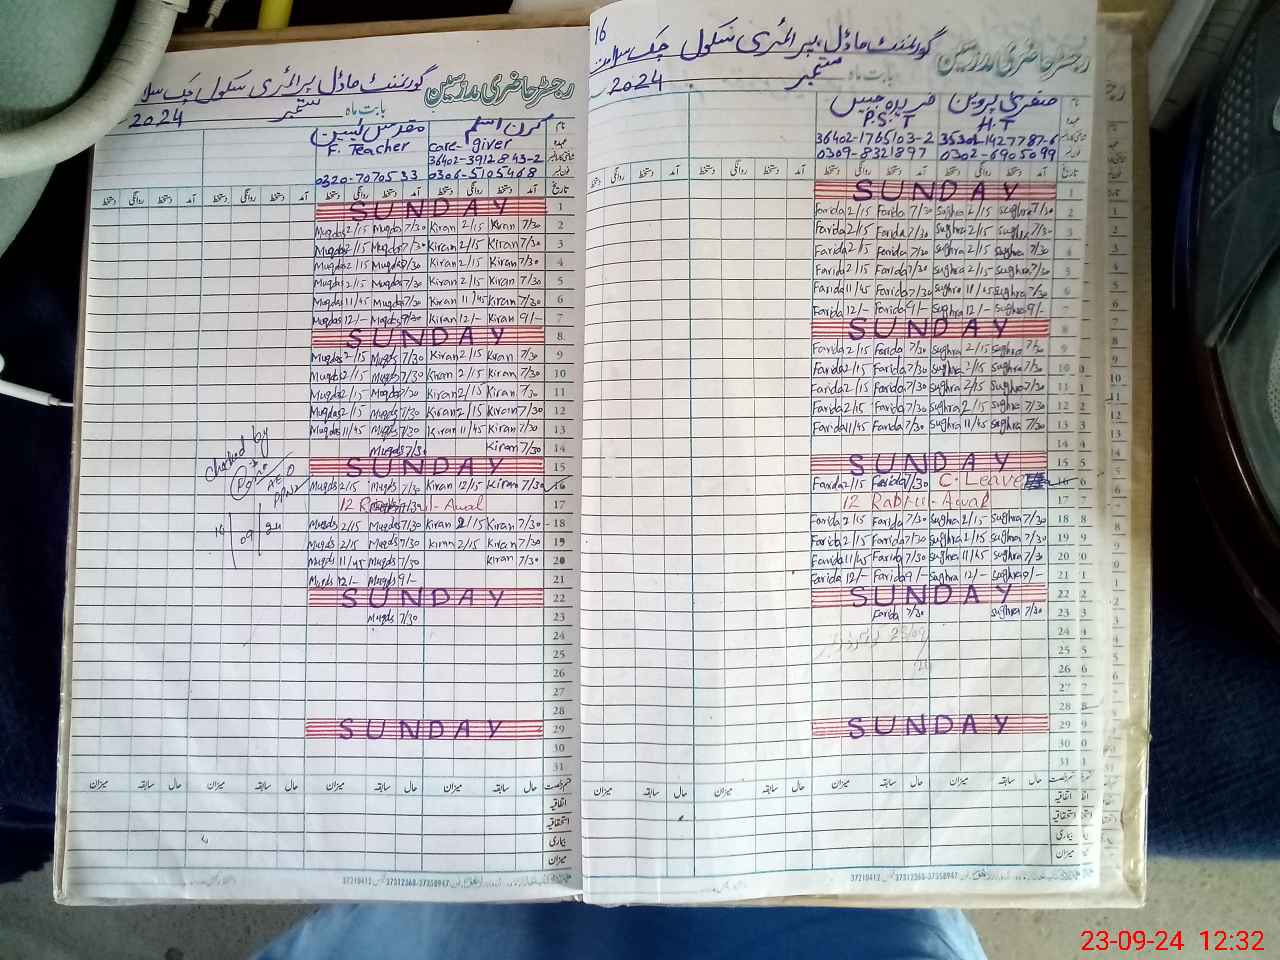 گورنمنٹ ماڈل پرائمری سکول چک
رجسٹر حاضری مدرسین
بابت ماہ ستمبر 2024
نام کرن اسلم مقدس
عہدہ care-giver F. Teacher
36402-3912843-2
0306-5105468 0320-7070533
تاریخ آمد دستخط روانگی دستخط آمد دستخط روانگی دستخط آمد دستخط روانگی دستخط آمد دستخط روانگی دستخط
SUNDAY 1
Muqds 2/15 Muqds 7/30 Kiran 2/15 Kiran 7/30 2
Muqds 2/15 Muqds 7/30 Kiran 2/15 Kiran 7/30 3
Muqds 2/15 Muqds 7/30 Kiran 2/15 Kiran 7/30 4
Muqds 2/15 Muqds 7/30 Kiran 2/15 Kiran 7/30 5
Muqds 11/45 Muqds 7/30 Kiran 11/45 Kiran 7/30 6
Muqds 12/- Muqds 9/30 Kiran 12/- Kiran 9/- 7
SUNDAY 8
Muqds 2/15 Muqds 7/30 Kiran 2/15 Kiran 7/30 9
Muqds 2/15 Muqds 7/30 Kiran 2/15 Kiran 7/30 10
Muqds 2/15 Muqds 7/30 Kiran 2/15 Kiran 7/30 11
Muqds 2/15 Muqds 7/30 Kiran 2/15 Kiran 7/30 12
Muqds 11/45 Muqds 7/30 Kiran 11/45 Kiran 7/30 13
Muqds 7/30 Kiran 7/30 14
SUNDAY 15
Muqds 2/15 Muqds 7/30 Kiran 12/15 Kiran 7/30 16
12 Rabi-ul-Awal 17
Muqds 2/15 Muqds 7/30 Kiran 2/15 Kiran 7/30 18
Muqds 2/15 Muqds 7/30 Kiran 2/15 Kiran 7/30 19
Muqds 11/45 Muqds 7/30 Kiran 7/30 20
Muqds 12/- Muqds 9/- 21
SUNDAY 22
Muqds 7/30 23
24
25
26
27
28
SUNDAY 29
30
31
checked by
AEO
09 24
حال سابقہ میزان حال سابقہ میزان حال سابقہ میزان حال سابقہ میزان
اتفاقیہ
استحقاقیہ
بیماری
میزان
37210412 37312368-37358947
16
گورنمنٹ ماڈل پرائمری سکول چک سلامت
رجسٹر حاضری مدرسین
بابت ماہ ستمبر 2024
نام صغریٰ پروین فریدہ جبیں
عہدہ H.T P.S.T
36402-1765103-2
0302-6905099 0309-8321897
تاریخ آمد دستخط روانگی دستخط آمد دستخط روانگی دستخط آمد دستخط روانگی دستخط آمد دستخط روانگی دستخط
SUNDAY 1
Farida 2/15 Farida 7/30 Sughra 2/15 Sughra 7/30 2
Farida 2/15 Farida 7/30 Sughra 2/15 Sughra 7/30 3
Farida 2/15 Farida 7/30 Sughra 2/15 Sughra 7/30 4
Farida 2/15 Farida 7/30 Sughra 2/15 Sughra 7/30 5
Farida 11/45 Farida 7/30 Sughra 11/45 Sughra 7/30 6
Farida 12/- Farida 9/- Sughra 12/- Sughra 9/- 7
SUNDAY 8
Farida 2/15 Farida 7/30 Sughra 2/15 Sughra 7/30 9
Farida 2/15 Farida 7/30 Sughra 2/15 Sughra 7/30 10
Farida 2/15 Farida 7/30 Sughra 2/15 Sughra 7/30 11
Farida 2/15 Farida 7/30 Sughra 2/15 Sughra 7/30 12
Farida 11/45 Farida 7/30 Sughra 11/45 Sughra 7/30 13
14
SUNDAY 15
Farida 2/15 Farida 7/30 C. Leave 16
12 Rabi-ul-Awal 17
Farida 2/15 Farida 7/30 Sughra 2/15 Sughra 7/30 18
Farida 2/15 Farida 7/30 Sughra 2/15 Sughra 7/30 19
Farida 11/45 Farida 7/30 Sughra 11/45 Sughra 7/30 20
Farida 12/- Farida 9/- Sughra 12/- Sughra 9/- 21
SUNDAY 22
Farida 7/30 Sughra 7/30 23
23/09 24
25
26
27
28
SUNDAY 29
30
31
حال سابقہ میزان حال سابقہ میزان حال سابقہ میزان حال سابقہ میزان
اتفاقیہ
استحقاقیہ
بیماری
میزان
37210412 37312368-37358947
23-09-24 12:32